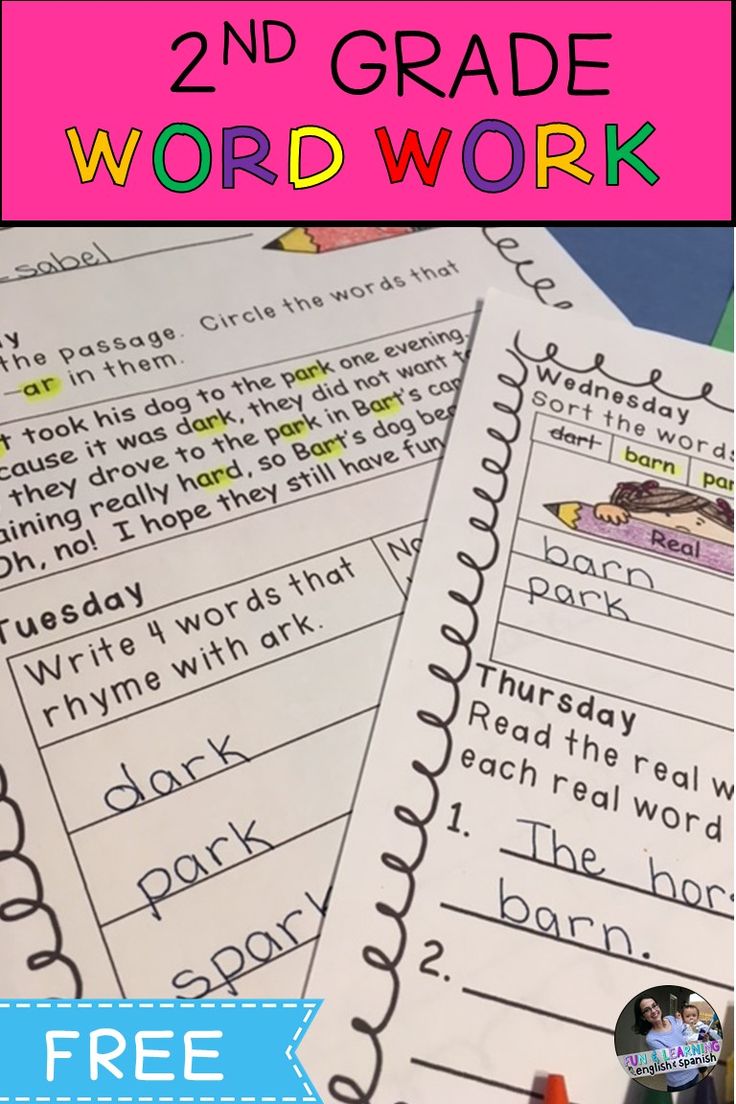 2ND GRADE
WORD WORK
sabel
the passage. Circle the words that
-ar in them.
took his dog to the park one evening.
cause it was dark, they did not want to
they drove to the park in Bart's car
aining really hard, so Bart's dog beg
Oh, no! I hope they still have fun
Tuesday
Write 4 words that
rhyme with ark.
dark
park
spark
Wednesday
Sort the words
dart barn par
Real
barn
park
Thursday
Read the real w
each real word
1. The hor
barn.
2.
FREE
FUN E-LEARNING
in english & spanish